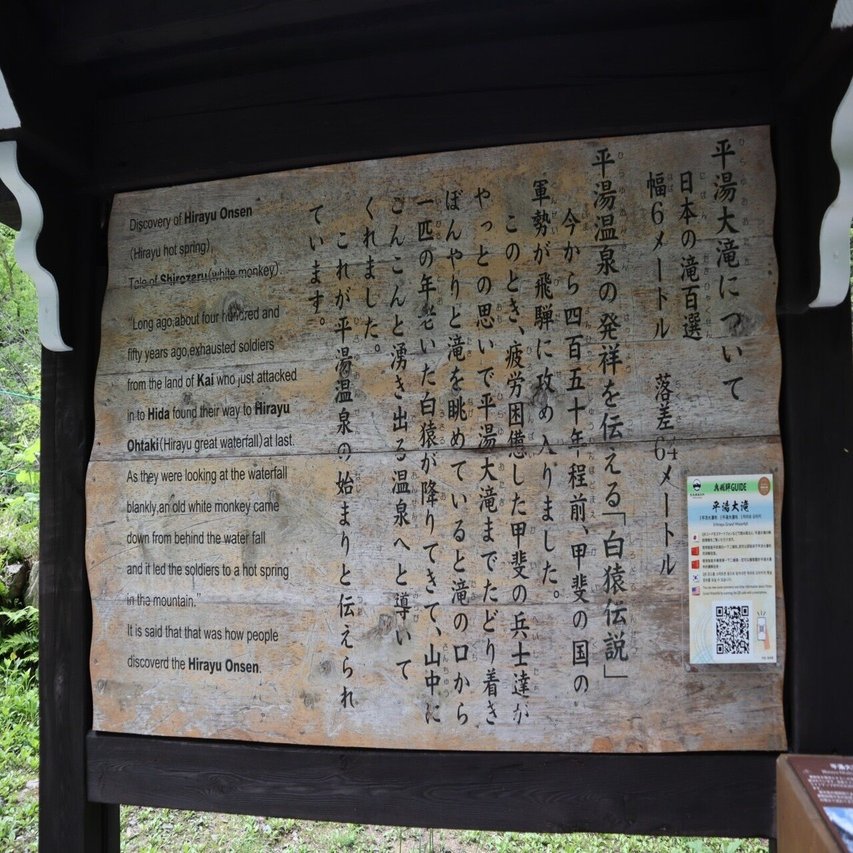 平湯大滝について
日本の滝百選
幅6メートル　落差64メートル
平湯温泉の発祥を伝える「白猿伝説」
今から四百五十年程前、甲斐の国の
軍勢が飛騨に攻め入りました。
このとき、疲労困憊した甲斐の兵士達が
やっとの思いで平湯大滝までたどり着き
ぼんやりと滝を眺めていると滝の口から
一匹の年老いた白猿が降りてきて、山中に
こんこんと湧き出る温泉へと導いて
くれました。
これが平湯温泉の始まりと伝えられ
ています。
Discovery of Hirayu Onsen
(Hirayu hot spring),
Tale of Shirozaru(white monkey).
"Long ago,about four hundred and
fifty years ago,exhausted soldiers
from the land of Kai who just attacked
in to Hida found their way to Hirayu
Ohtaki(Hirayu great waterfall)at last.
As they were looking at the waterfall
blankly,an old white monkey came
down from behind the water fall
and it led the soldiers to a hot spring
in the mountain."
It is said that that was how people
discoverd the Hirayu Onsen.
GUIDE
平湯大滝